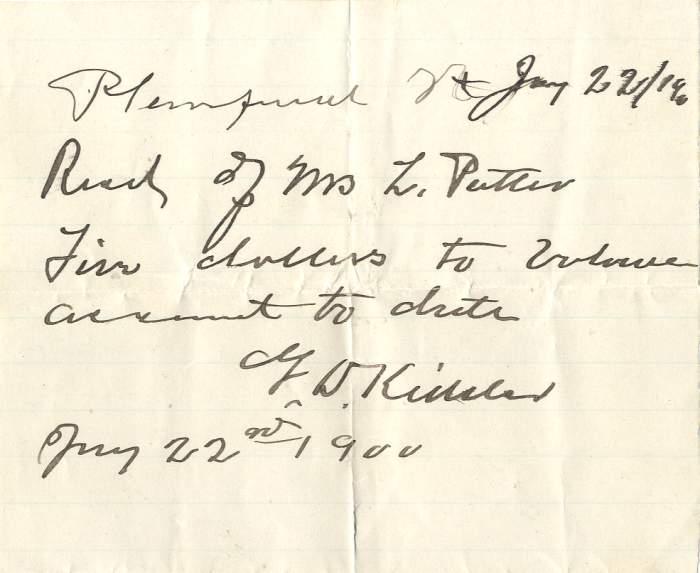 Plainfield Vt Jany 22/190
Recd of Mrs L. Potter
Five dollars to balance
account to date
D. Kidder
Jany 22nd 1900